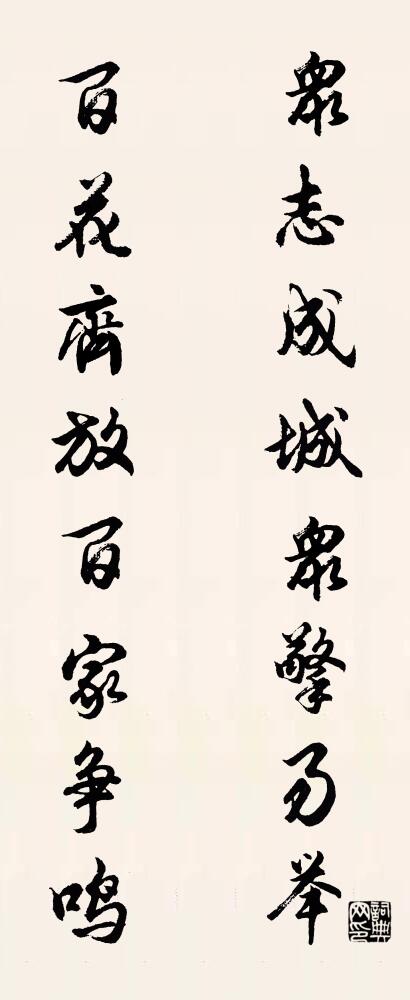 眾志成城眾擎易举
百花齊放百家争鸣
詞典网印